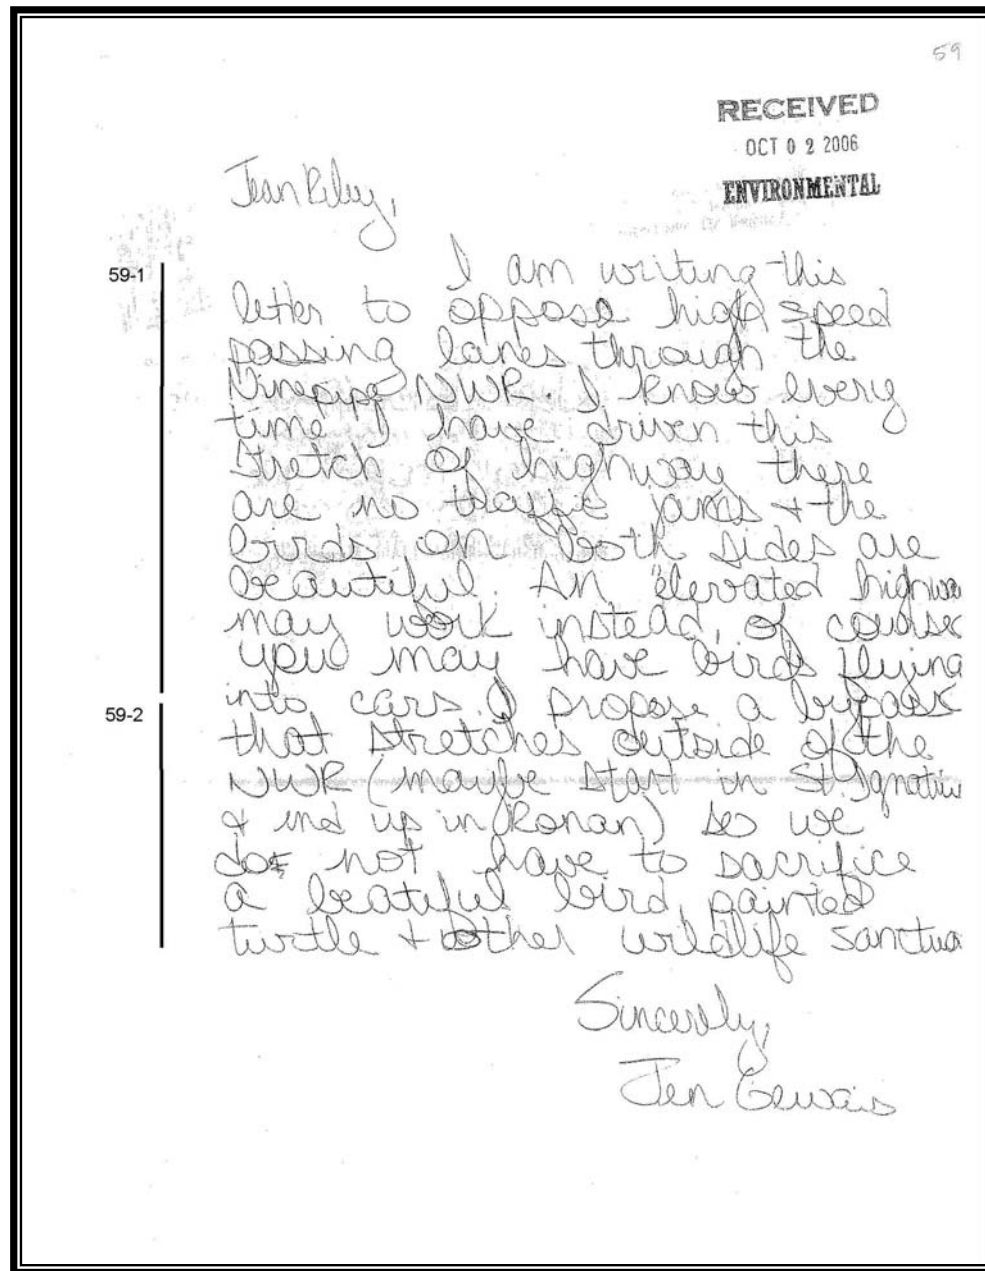 59
RECEIVED
OCT 0 2 2006
ENVIRONMENTAL
Jean Riley,
59-1
I am writing this
letter to oppose high speed
passing lanes through the
Ninepipe NWR. I know every
time I have driven this
stretch of highway there
are no traffic jams + the
birds on both sides are
beautiful. An elevated highwa
may work instead, of course
you may have birds flying
into cars I propose a bypass
59-2
that stretches outside of the
NWR (maybe start in St. Ignatiu
& end up in Ronan) so we
do not have to sacrifice
a beatiful bird, painted
turtle + other wildlife sanctua
Sincerely,
Jen Gervais